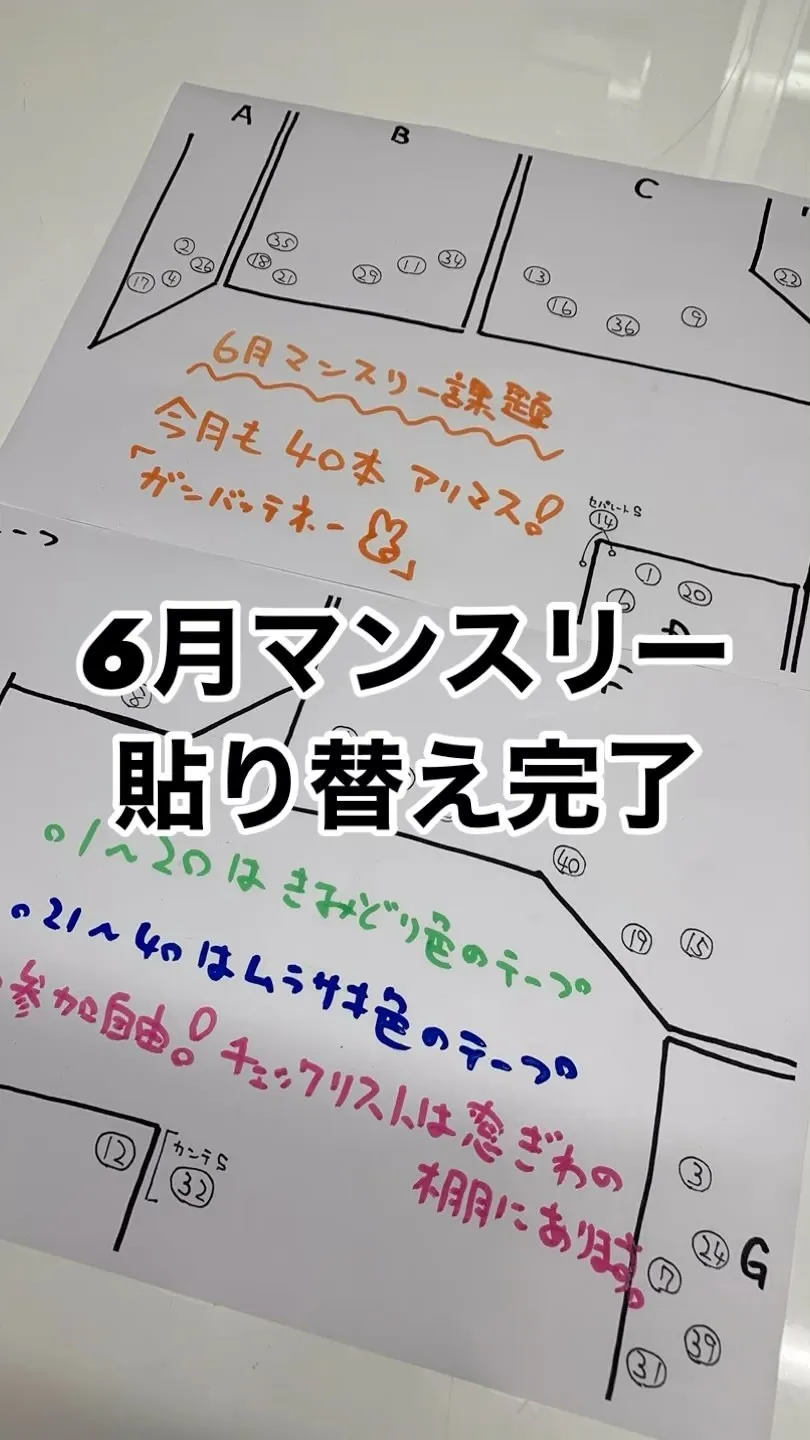 A
B
C
2
26
17
4
35
18
21
29
11
34
13
16
36
9
22
6月マンスリー課題
今月も 40本 アリマス!
「ガンバッテネー」
セパレートS
14
1
20
6
6月マンスリー
貼り替え完了
40
19
15
・1〜20は きみどり色のテープ
・21〜40はムラサキ色のテープ
・参加自由! チェックリストは窓ぎわの
棚にあります。
12
カンテS
32
3
24
G
7
39
31